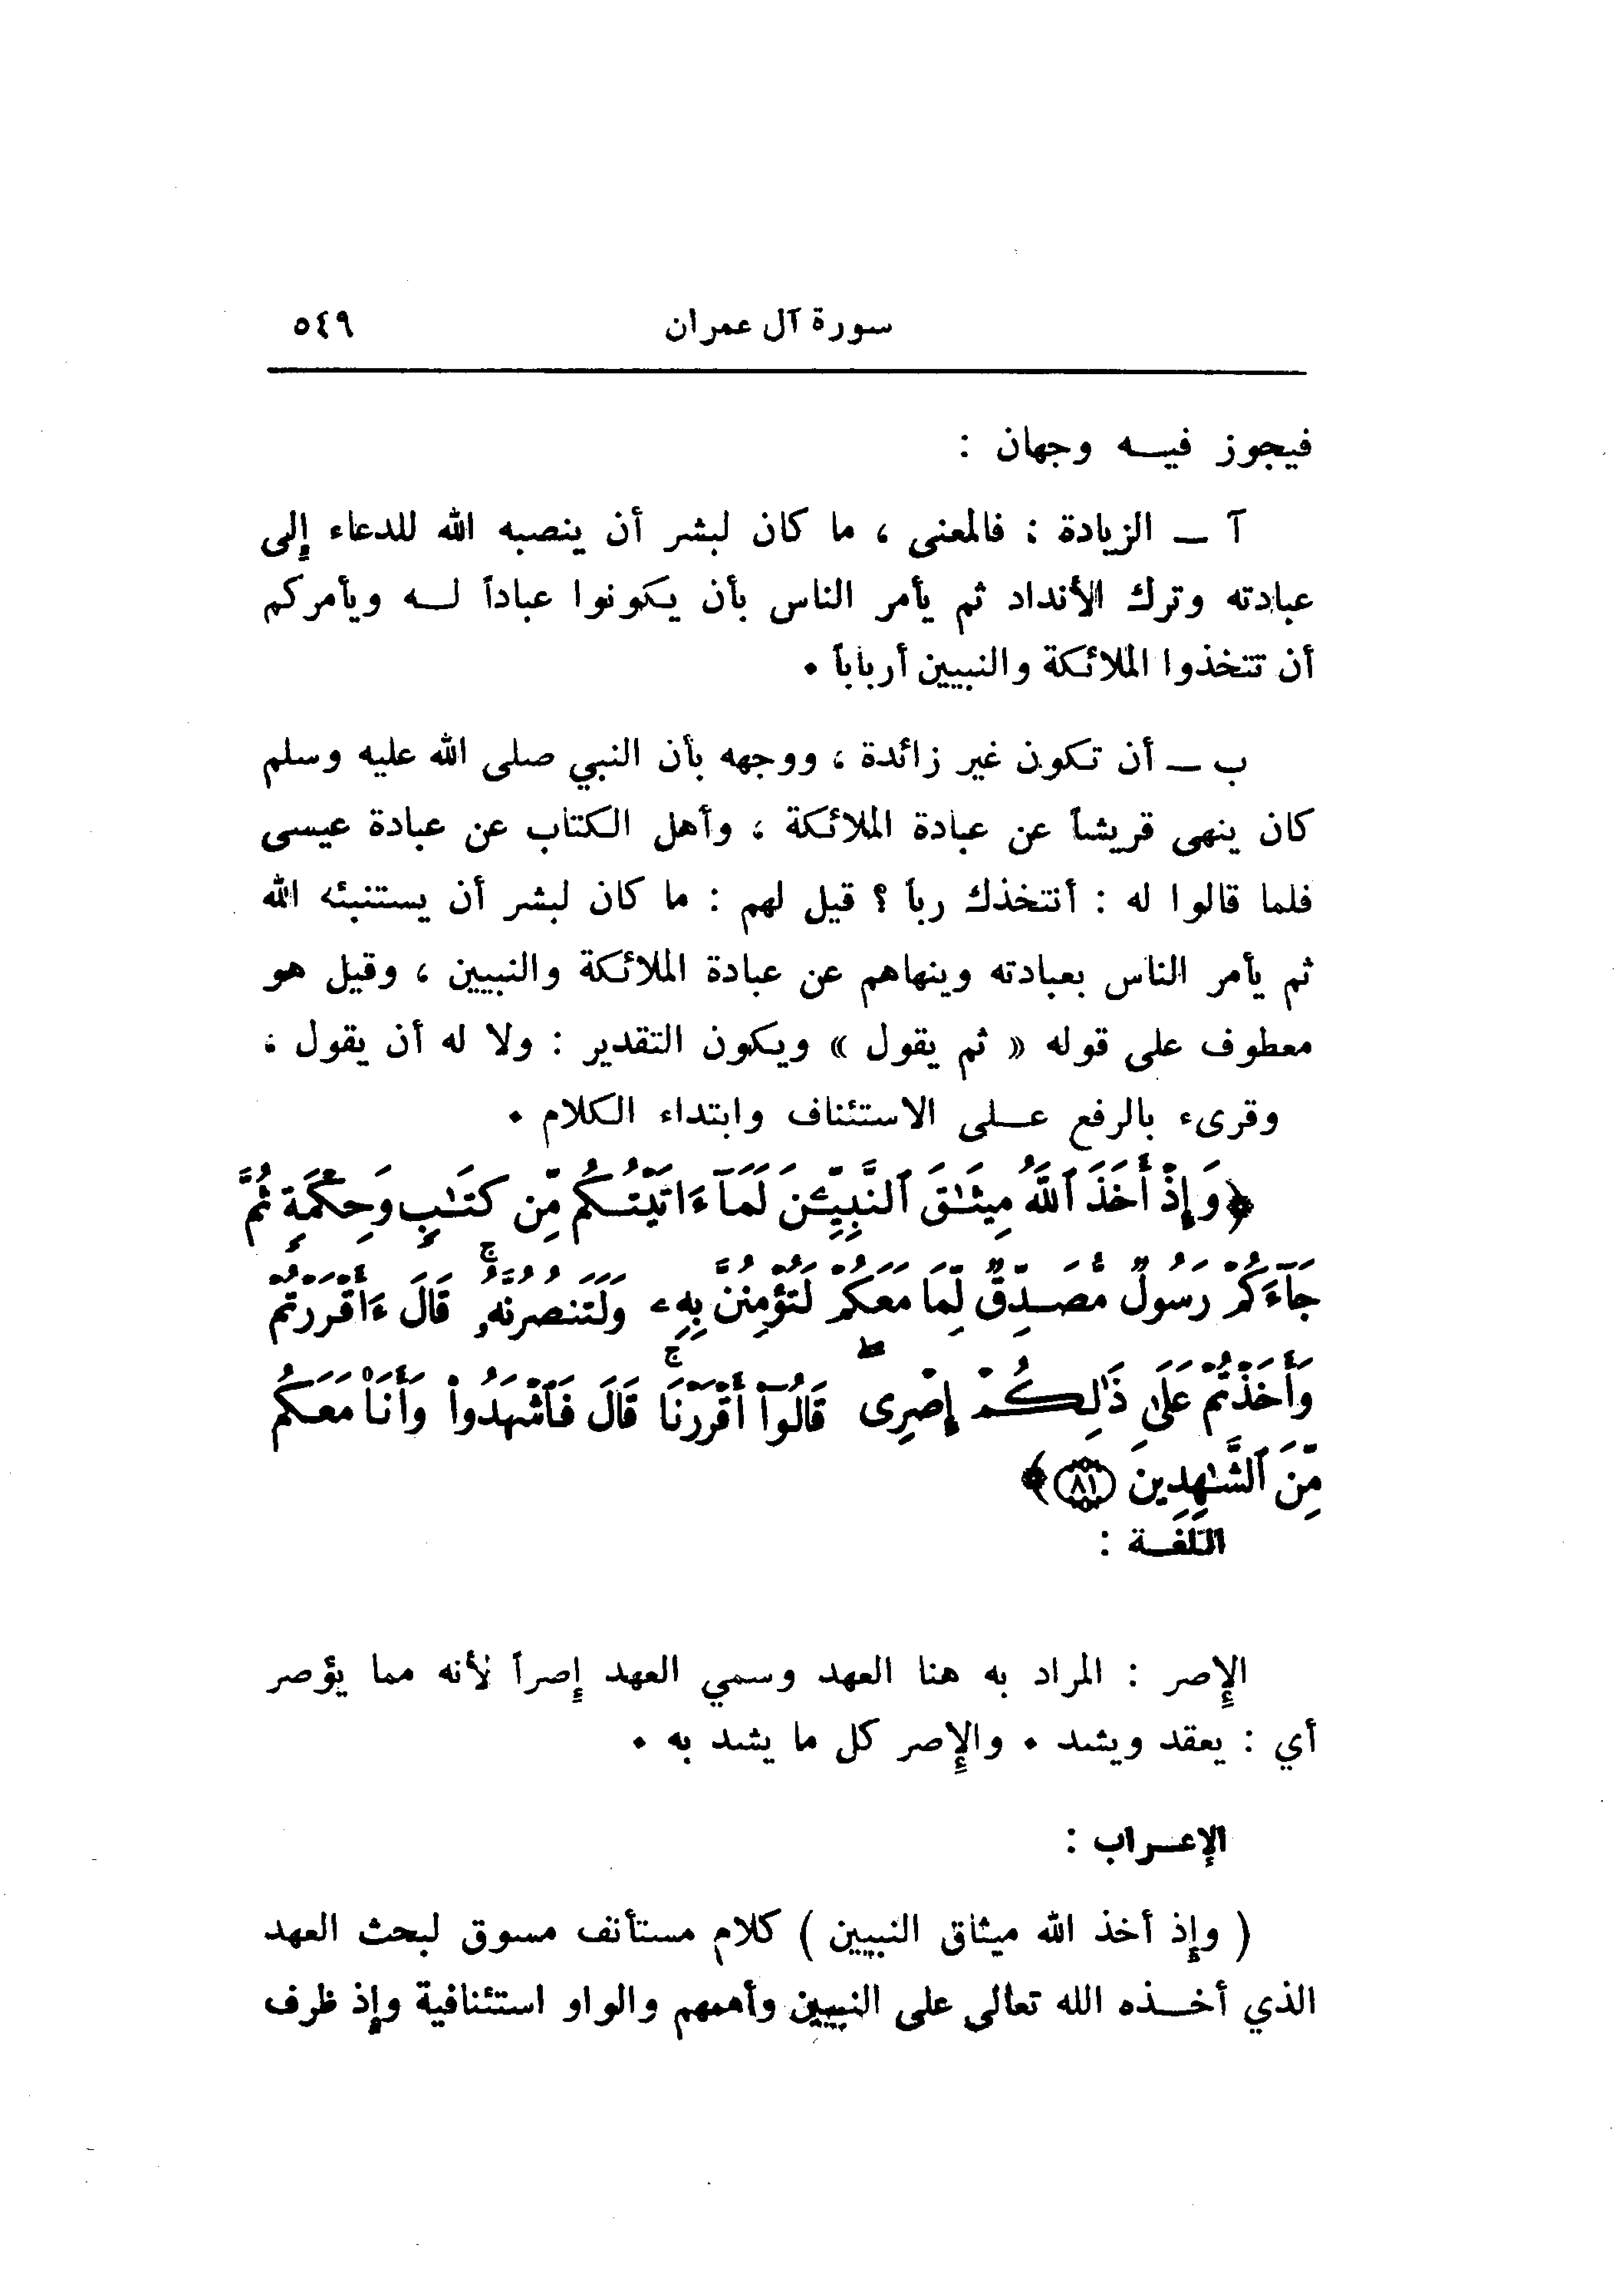 سورة آل عمران ٥٤٩
فيجوز فيه وجهان :
آ ــ الزيادة : فالمعنى ، ما كان لبشر أن ينصبه الله للدعاء إلى
عبادته وترك الأنداد ثم يأمر الناس بأن يكونوا عباداً له ويأمركم
أن تتخذوا الملائكة والنبيين أرباباً .
ب ــ أن تكون غير زائدة ، ووجهه بأن النبي صلى الله عليه وسلم
كان ينهى قريشاً عن عبادة الملائكة ، وأهل الكتاب عن عبادة عيسى
فلما قالوا له : أنتخذك رباً ؟ قيل لهم : ما كان لبشر أن يستنبئه الله
ثم يأمر الناس بعبادته وينهاهم عن عبادة الملائكة والنبيين ، وقيل هو
معطوف على قوله « ثم يقول » ويكون التقدير : ولا له أن يقول ،
وقرىء بالرفع على الاستئناف وابتداء الكلام .
﴿وَإِذْ أَخَذَ ٱللَّهُ مِيثَـٰقَ ٱلنَّبِيِّـۧنَ لَمَآ ءَاتَيْتُكُم مِّن كِتَـٰبٍ وَحِكْمَةٍ ثُمَّ
جَآءَكُمْ رَسُولٌ مُّصَدِّقٌ لِّمَا مَعَكُمْ لَتُؤْمِنُنَّ بِهِۦ وَلَتَنصُرُنَّهُۥۚ قَالَ ءَأَقْرَرْتُمْ
وَأَخَذْتُمْ عَلَىٰ ذَٰلِكُمْ إِصْرِى ۖ قَالُوٓا۟ أَقْرَرْنَاۚ قَالَ فَٱشْهَدُوا۟ وَأَنَا۠ مَعَكُم
مِّنَ ٱلشَّـٰهِدِينَ ٨١﴾
اللغة :
الإصر : المراد به هنا العهد وسمي العهد إصراً لأنه مما يؤصر
أي : يعقد ويشد . والإصر كل ما يشد به .
الإعراب :
( وإذ أخذ الله ميثاق النبيين ) كلام مستأنف مسوق لبحث العهد
الذي أخذه الله تعالى على النبيين وأممهم والواو استئنافية وإذ ظرف